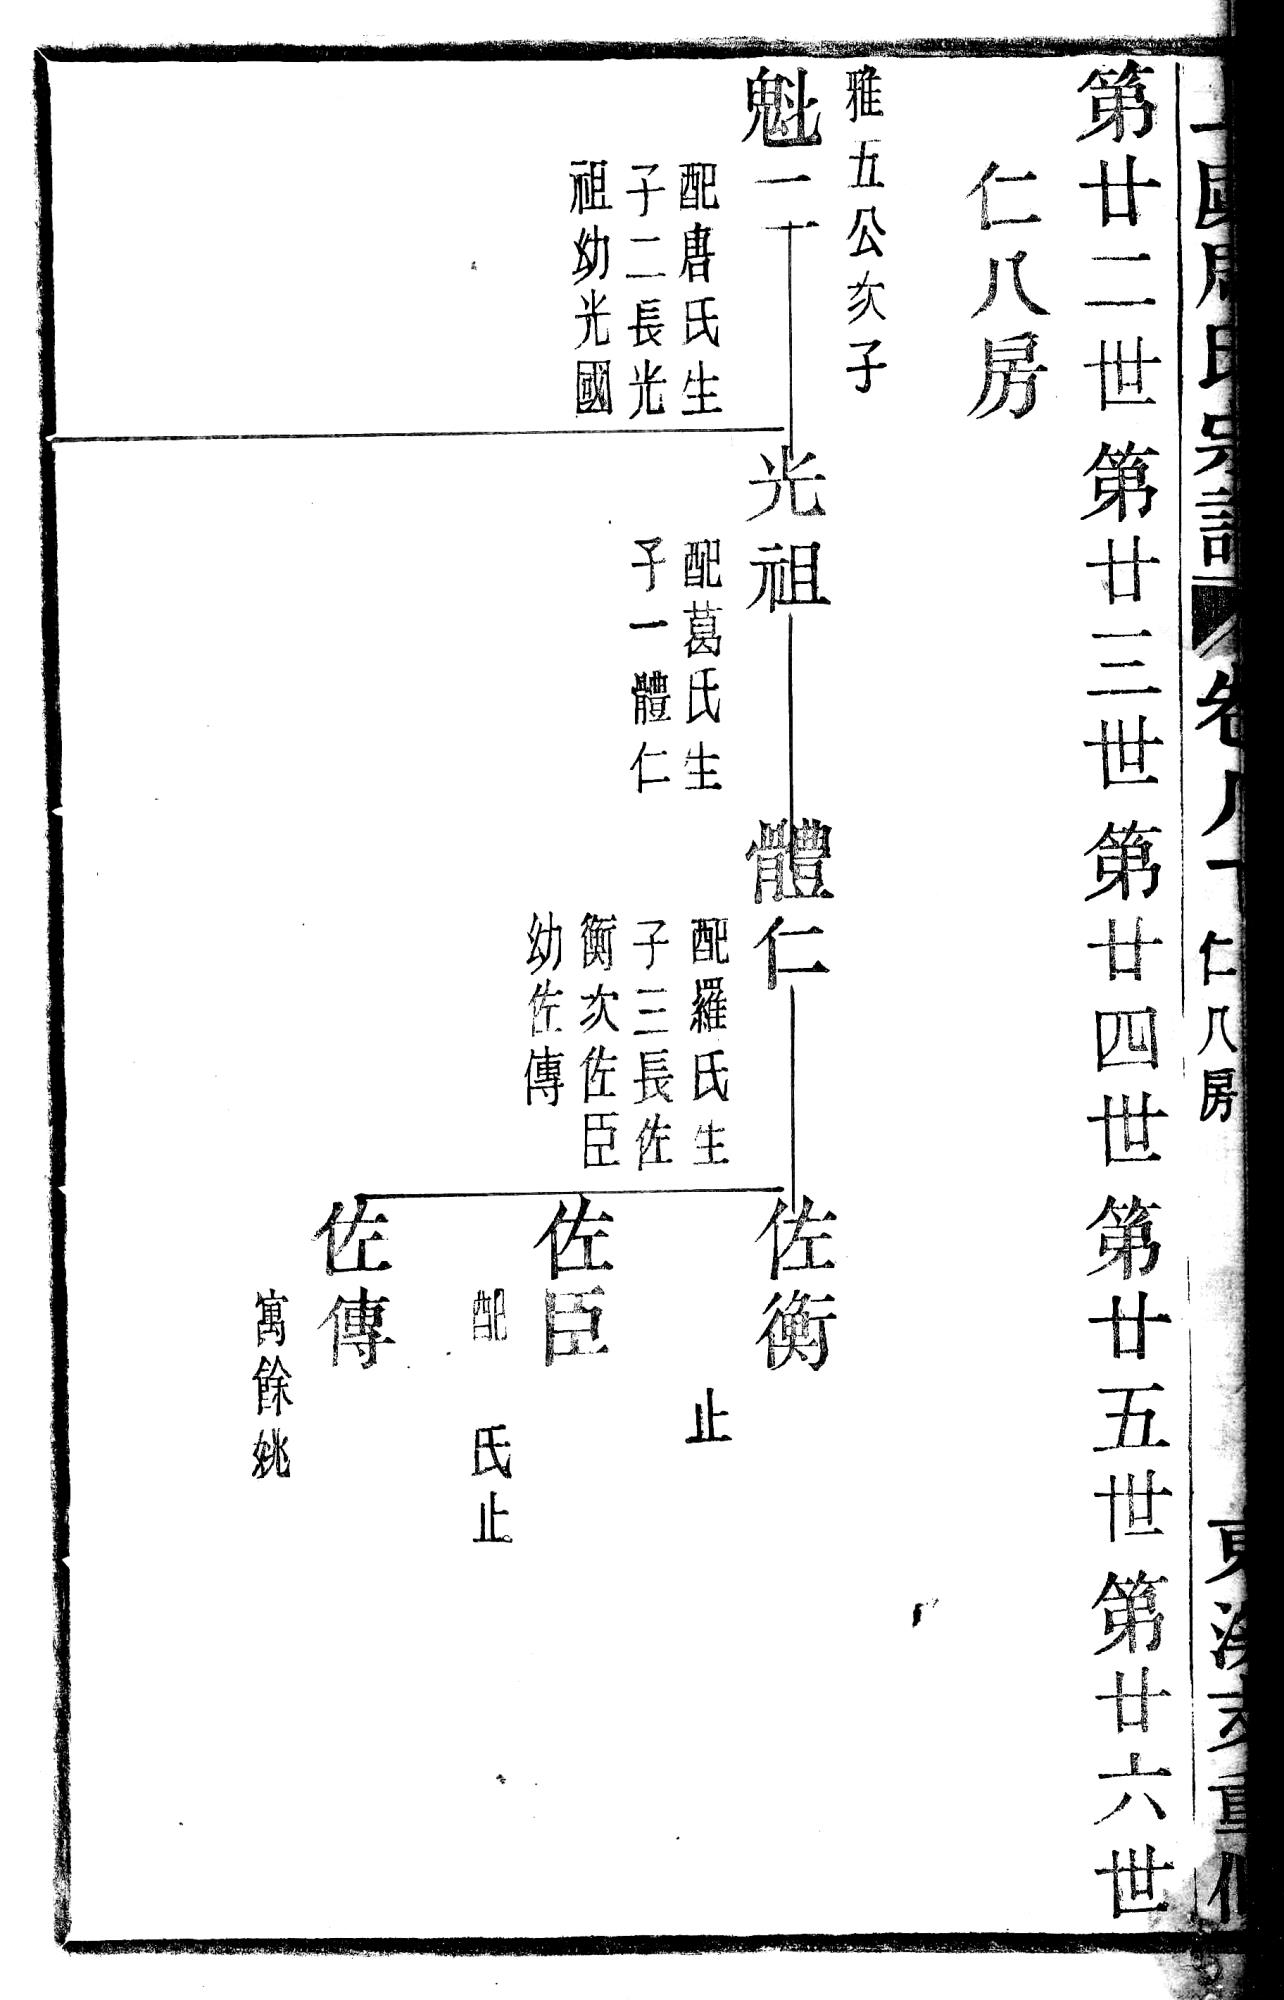 國周氏宗譜 卷八十 仁八房
第廿二世 第廿三世 第廿四世 第廿五世 第廿六世
仁八房
雅五公次子
魁一
配唐氏生
子二長光
祖幼光國
光祖
配葛氏生
子一體仁
體仁
配羅氏生
子三長佐
衡次佐臣
幼佐傳
佐衡
止
佐臣
配 氏止
佐傳
寓餘姚